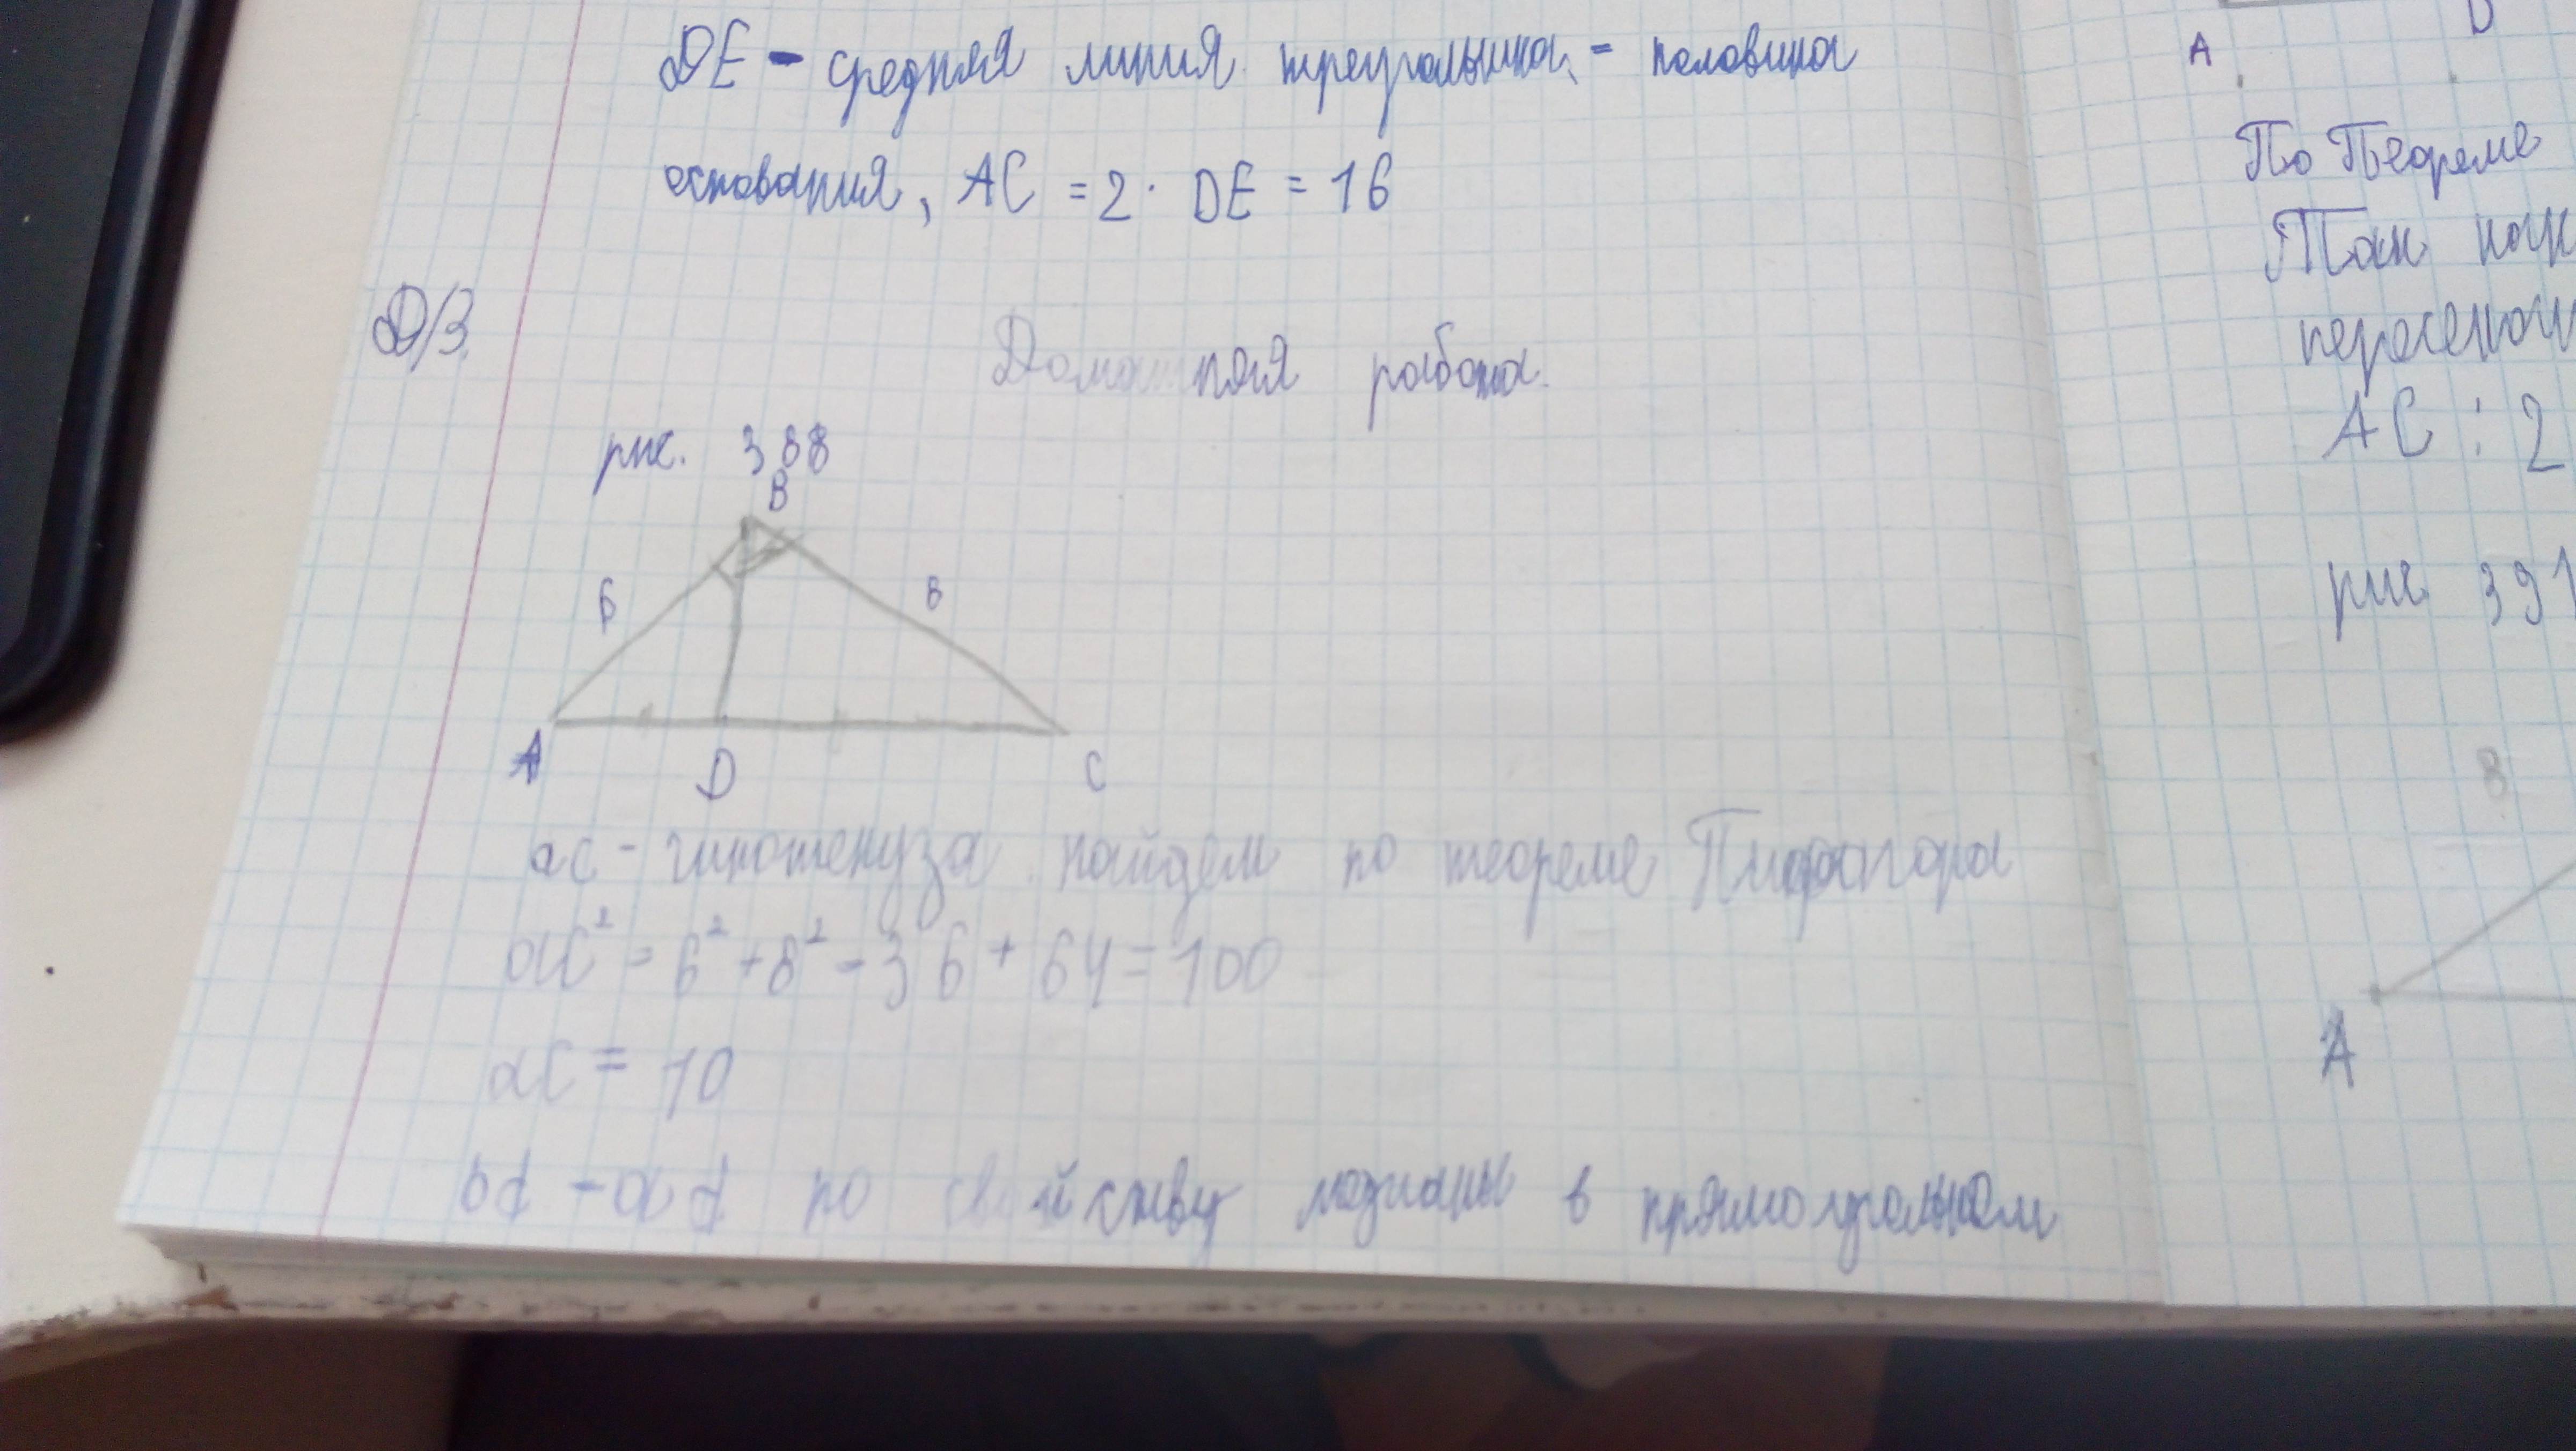 DE - средняя линия треугольника, - половина
основания, AC = 2 · DE = 16
Д/З.
Домашняя работа.
рис. 388
B
6
8
A
D
C
ac - гипотенуза найдем по теореме Пифагора
ac² = 6² + 8² = 36 + 64 = 100
ac = 10
bd - ad по свойству медианы в прямоугольном
A
D
По Теореме
Так как
AC : 2
рис 391
8
A